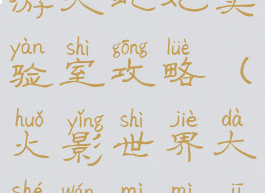 yàn shì gōng lüè
验室攻略（
huǒ yǐng shì jiè dà
火影世界大
shé wán mì mì jī